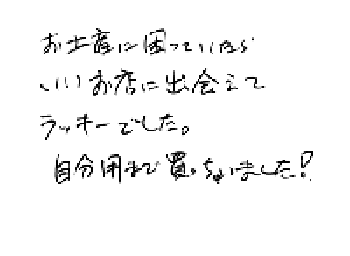 お土産に困っていたら
いいお店に出会えて
ラッキーでした。
自分用まで買っちゃいました!